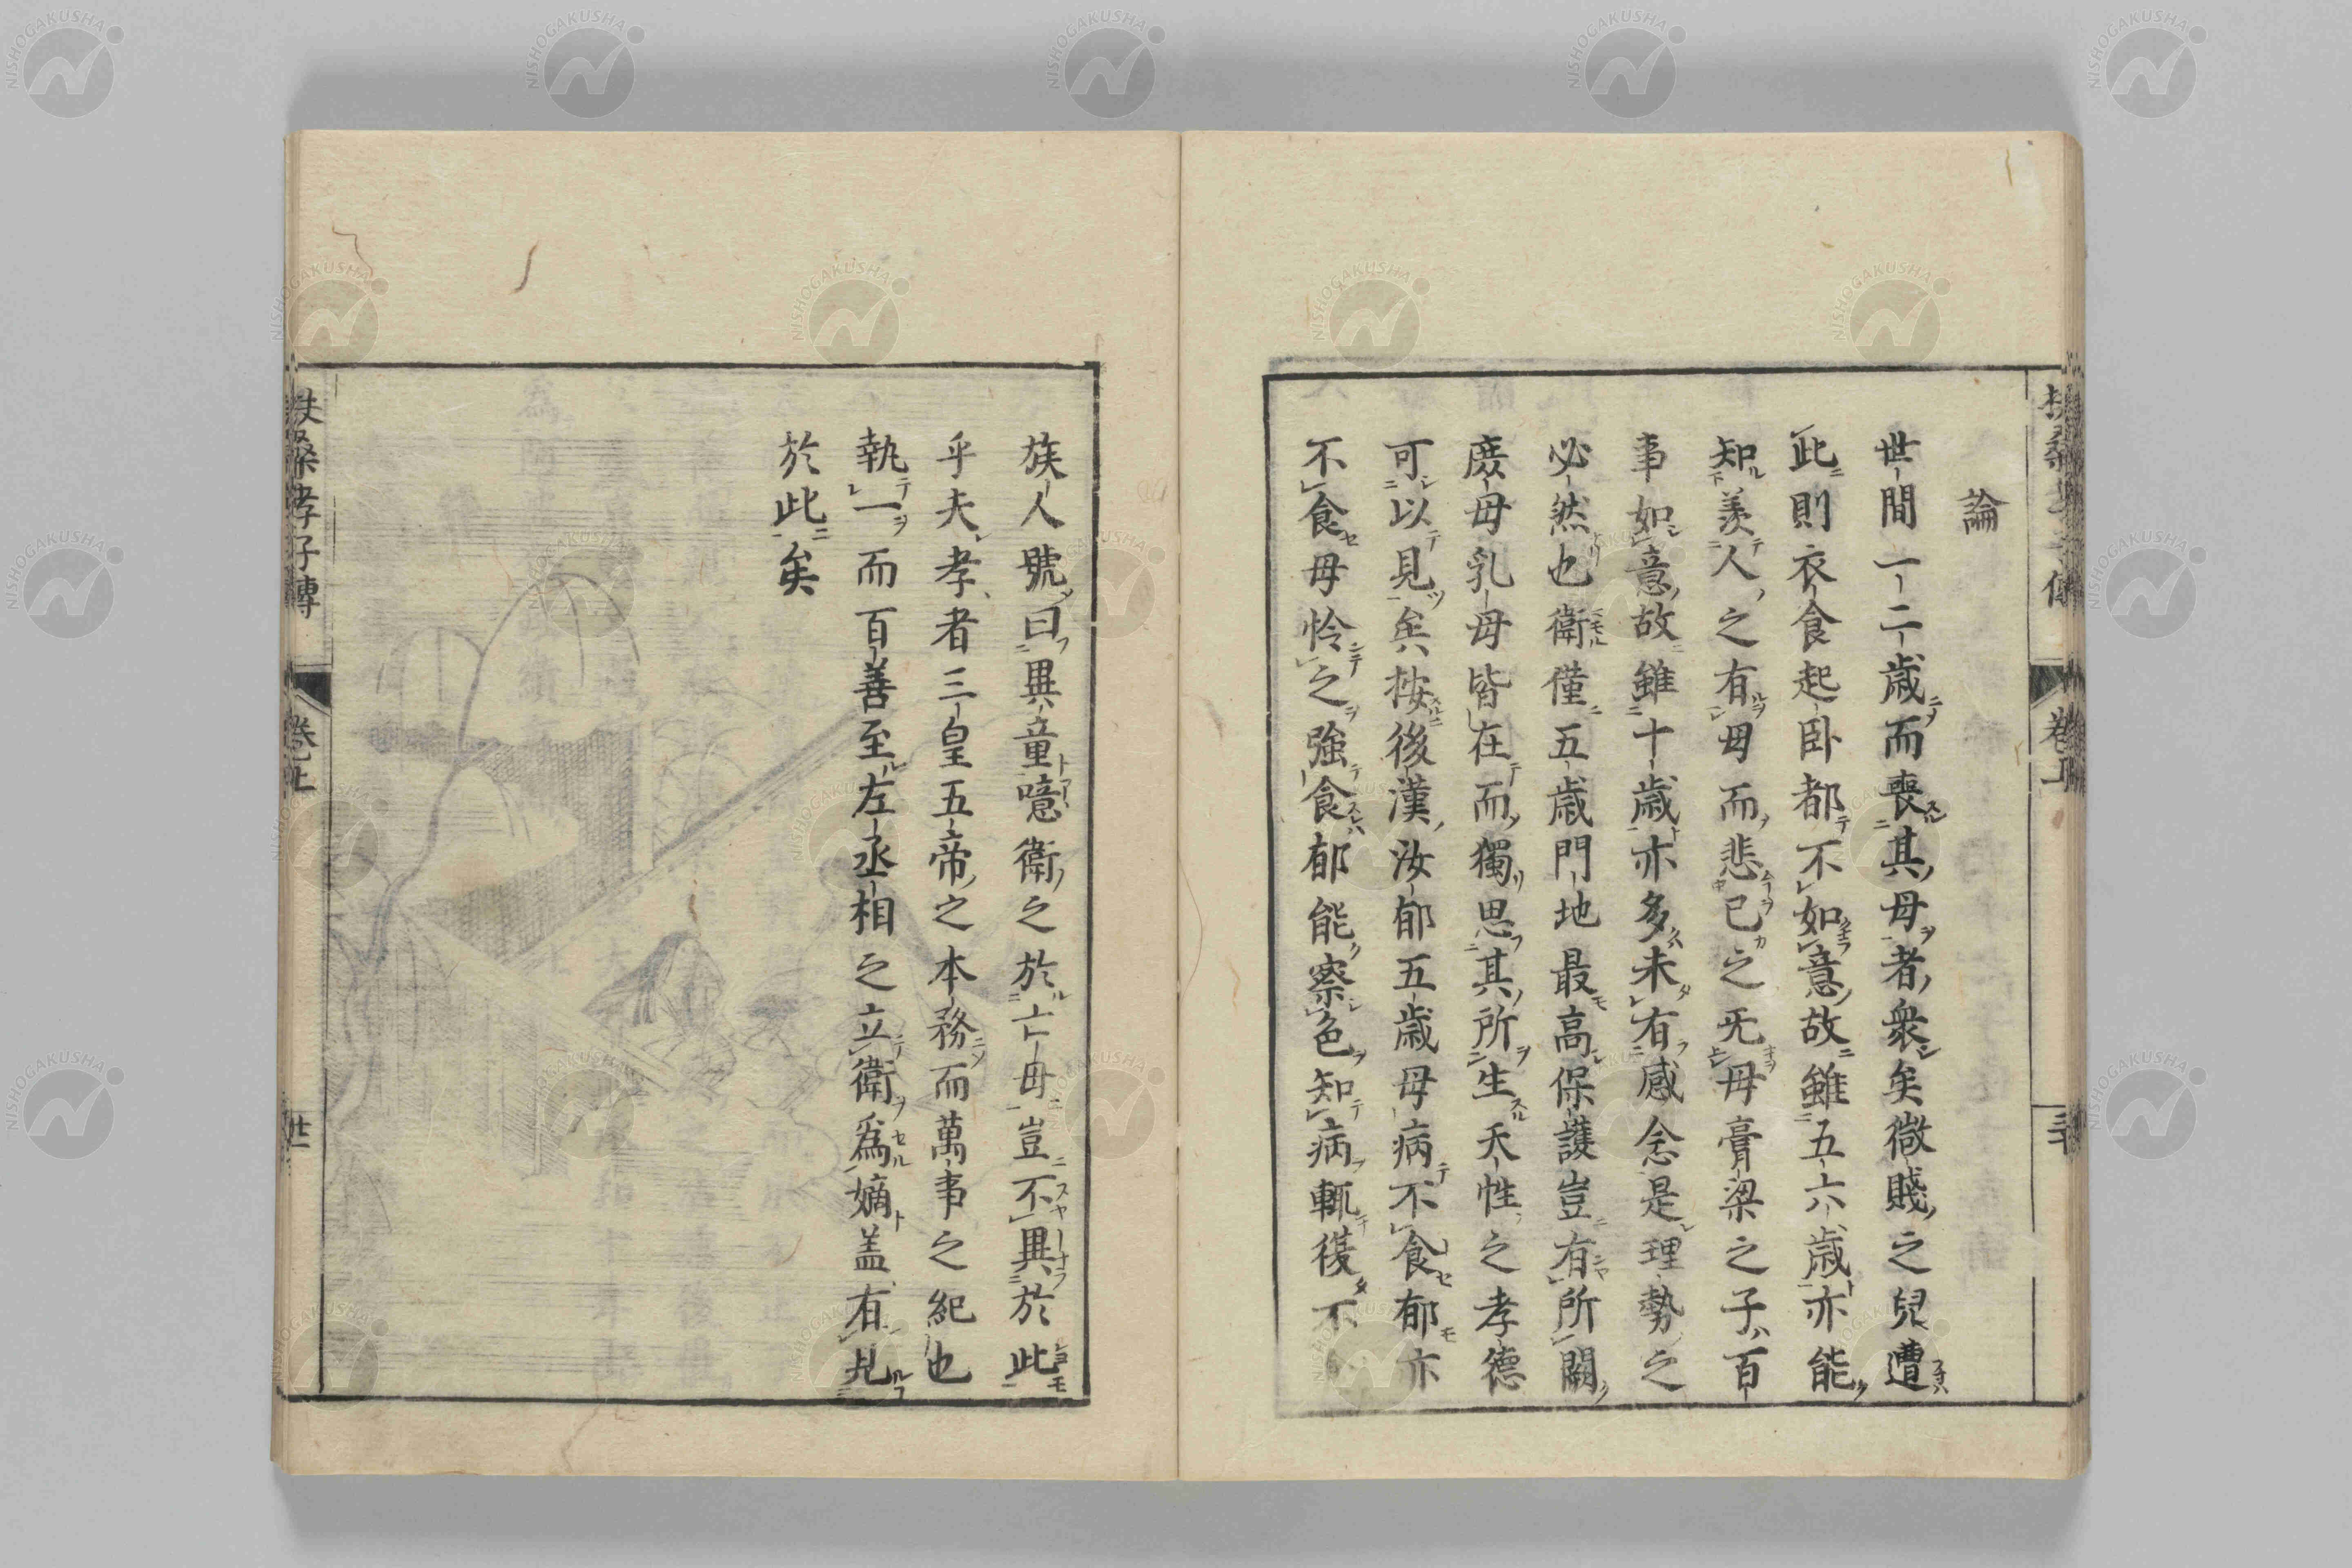 論
世間一二歳而喪其母者衆矣微賤之兒遭
此則衣食起臥都不如意故雖五六歳亦能
知羨人之有母而悲已之无母膏梁之子百
事如意故雖十歳亦多未有感念是理勢之
必然也衛僅五歳門地最高保護豈有所闕
庶母乳母皆在而獨思其所生天性之孝德
可以見矣按後漢汝郁五歳母病不食郁亦
不食母怜之強食郁能察色知病輒復不
族人號曰異童噫衛之於亡母豈不異於此
乎夫孝者三皇五帝之本務而萬事之紀也
執一而百善至左丞相之立衛爲嫡盖有見
於此矣
扶桑孝子傳 卷上 廿一
NISHOGAKUSHA